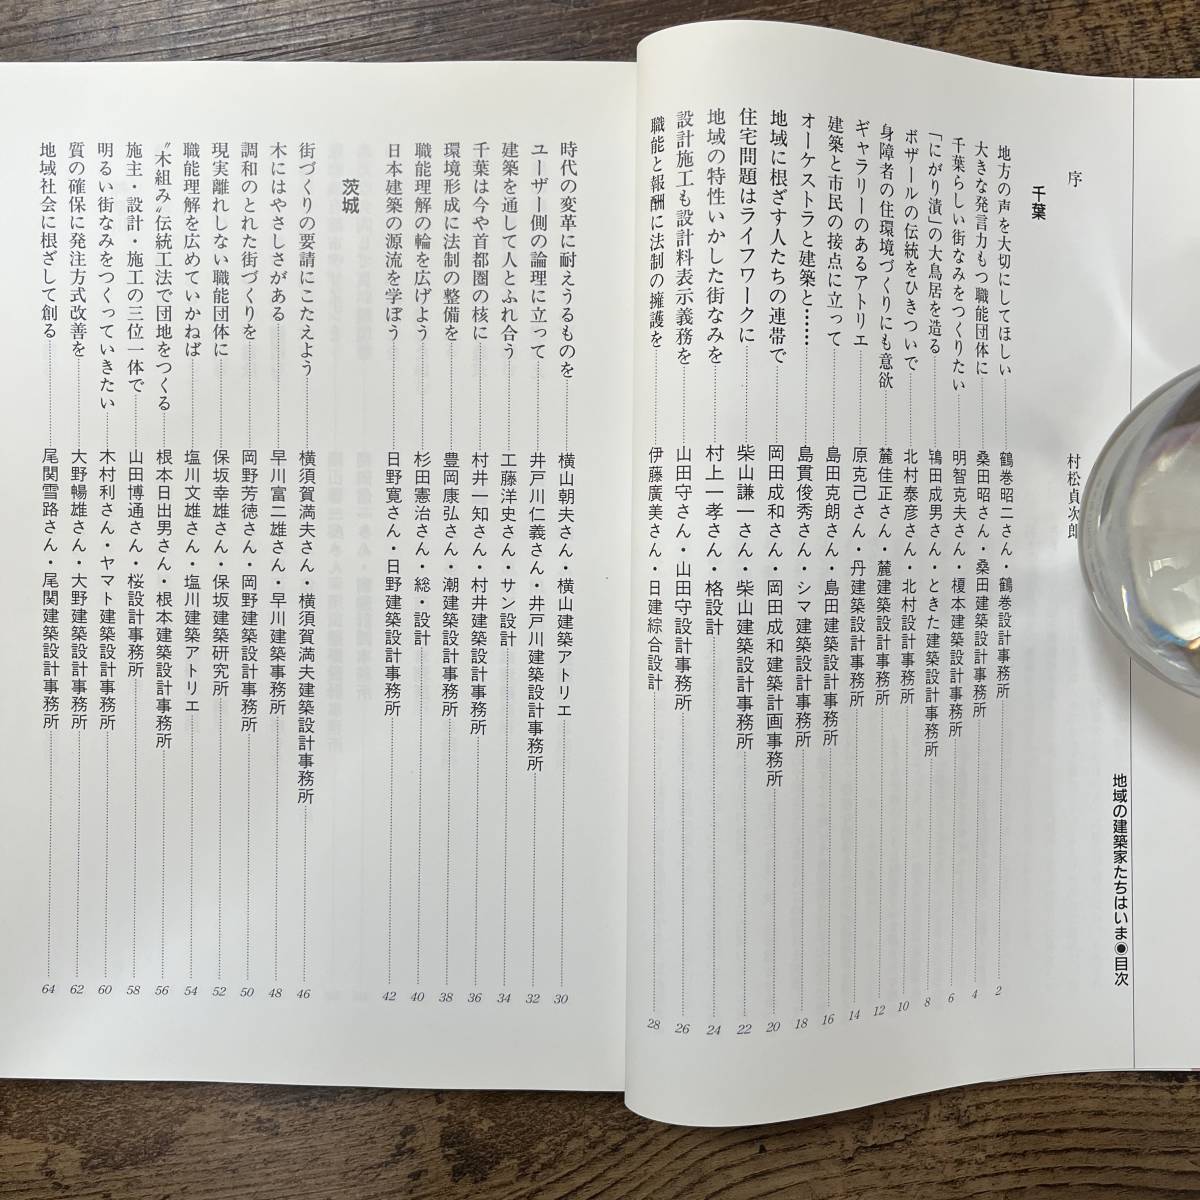 地域の建築家たちはいま◉目次
序 村松貞次郎
千葉
地方の声を大切にしてほしい 鶴巻昭二さん・鶴巻設計事務所 2
大きな発言力もつ職能団体に 桑田昭さん・桑田建築設計事務所 4
千葉らしい街なみをつくりたい 明智克夫さん・榎本建築設計事務所 6
「にがり漬」の大鳥居を造る 鴇田成男さん・ときた建築設計事務所 8
ボザールの伝統をひきついで 北村泰彦さん・北村設計事務所 10
身障者の住環境づくりにも意欲 麓佳正さん・麓建築設計事務所 12
ギャラリーのあるアトリエ 原克己さん・丹建築設計事務所 14
建築と市民の接点に立って 島田克朗さん・島田建築設計事務所 16
オーケストラと建築と…… 島貫俊秀さん・シマ建築設計事務所 18
地域に根ざす人たちの連帯で 岡田成和さん・岡田成和建築計画事務所 20
住宅問題はライフワークに 柴山謙一さん・柴山建築設計事務所 22
地域の特性いかした街なみを 村上一孝さん・格設計 24
設計施工も設計料表示義務を 山田守さん・山田守設計事務所 26
職能と報酬に法制の擁護を 伊藤廣美さん・日建綜合設計 28
時代の変革に耐えうるものを 横山朝夫さん・横山建築アトリエ 30
ユーザー側の論理に立って 井戸川仁義さん・井戸川建築設計事務所 32
建築を通して人とふれ合う 工藤洋史さん・サン設計 34
千葉は今や首都圏の核に 村井一知さん・村井建築設計事務所 36
環境形成に法制の整備を 豊岡康弘さん・潮建築設計事務所 38
職能理解の輪を広げよう 杉田憲治さん・総・設計 40
日本建築の源流を学ぼう 日野寛さん・日野建築設計事務所 42
茨城
街づくりの要請にこたえよう 横須賀満夫さん・横須賀満夫建築設計事務所 46
木にはやさしさがある 早川富二雄さん・早川建築事務所 48
調和のとれた街づくりを 岡野芳徳さん・岡野建築設計事務所 50
現実離れしない職能団体に 保坂幸雄さん・保坂建築研究所 52
職能理解を広めていかねば 塩川文雄さん・塩川建築アトリエ 54
〝木組み〟伝統工法で団地をつくる 根本日出男さん・根本建築設計事務所 56
施主・設計・施工の三位一体で 山田博通さん・桜設計事務所 58
明るい街なみをつくっていきたい 木村利さん・ヤマト建築設計事務所 60
質の確保に発注方式改善を 大野暢雄さん・大野建築設計事務所 62
地域社会に根ざして創る 尾関雪路さん・尾関建築設計事務所 64